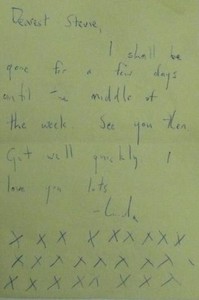 Dearest Stevie,
I shall be
gone for a few days
until the middle of
the week See you then
Get well quickly I
love you lots
-Linda
X X X X X X X X X
X X X X X X X X X
X X X X X X X X